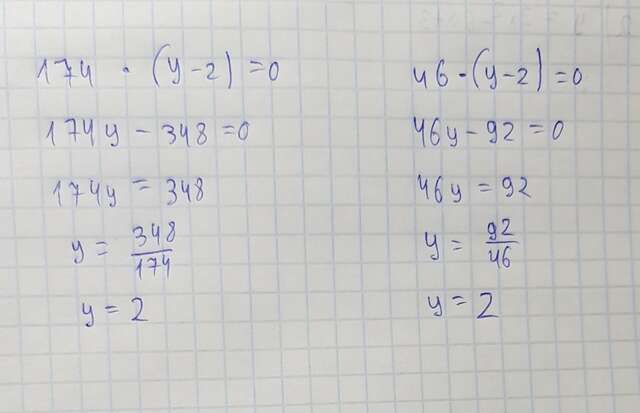 174 · (y-2) =0
174y - 348 =0
174y = 348
y = 348/174
y = 2
46 · (y-2) =0
46y - 92 =0
46y = 92
y = 92/46
y = 2